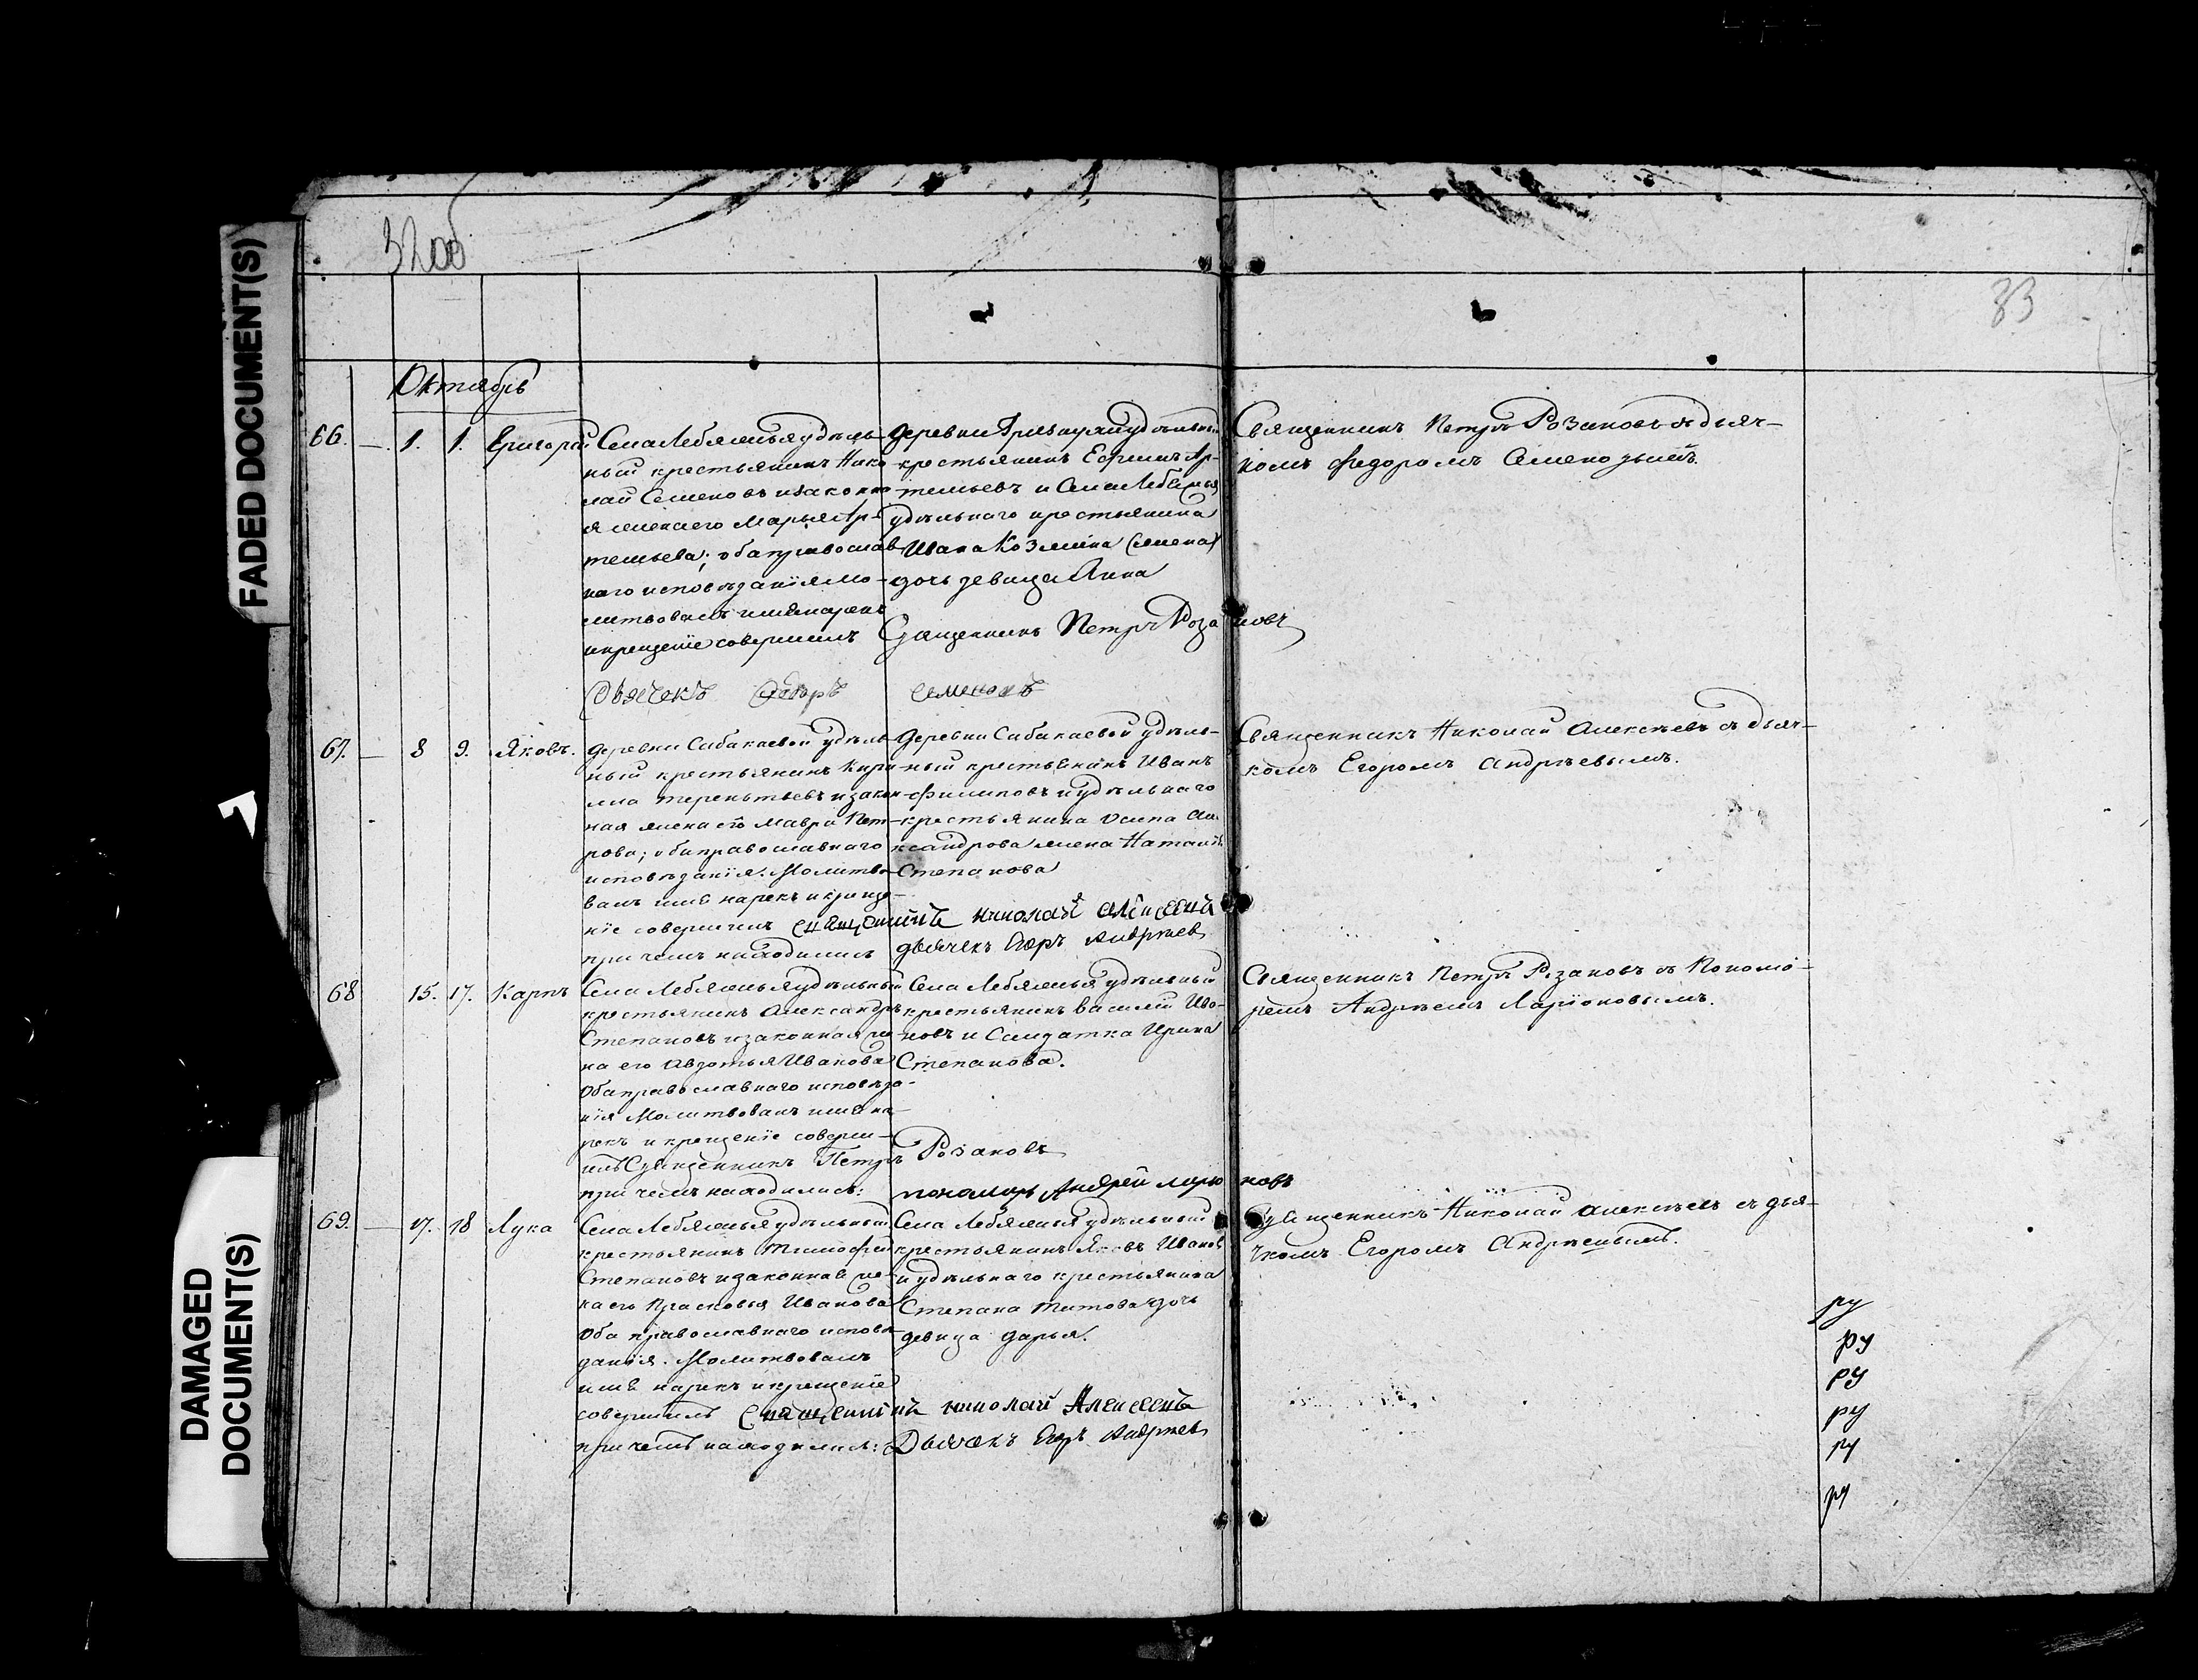 FADED DOCUMENT(S)
DAMAGED
DOCUMENT(S)
32об
33
Октябрь
66. — 1. 1. Григорiй
Села Лебяжья удѣль-
ный крестьянинъ Нико-
лай Семеновъ и законна-
я жена его Марья Ар-
темьева; оба православ-
наго исповѣданiя Мо-
литвовалъ имя нарекъ
и крещенiе совершилъ
деревни удѣльный
крестьянинъ Ефимъ Ар-
темьевъ и Села Лебяжья
удѣльнаго крестьянина
Ивана Козмина
дочь девица Анна
Священникъ Петръ Розановъ
Дьячекъ Федоръ Семеновъ
Священникъ Петръ Розановъ съ дьяч-
комъ Федоромъ Семеновымъ.
67. — 8 9. Яковъ.
деревни Сабакаевой удѣль-
ный крестьянинъ Кири-
ла Терентьевъ и закон-
ная жена его Мавра Пет-
рова; оба православнаго
исповѣданiя. Молитво-
валъ имя нарекъ и креще-
нiе совершилъ священникъ Николай Алексеевъ
при чемъ находились дьячекъ Егоръ Андреев
деревни Сабакаевой удѣль-
ный крестьянинъ Иванъ
Филиповъ и удѣльнаго
крестьянина Осипа Але-
ксандрова жена Наталья
Степанова
Священникъ Николай Алексѣевъ съ дьяч-
комъ Егоромъ Андрѣевымъ.
68 15. 17. Карпъ
Села Лебяжья удѣльный
крестьянинъ Александръ
Степановъ и законная же-
на его Авдотья Иванова
Оба православнаго исповѣда-
нiя Молитвовалъ имя на-
рекъ и крещенiе соверши-
лъ Священникъ Петръ Розановъ
при чемъ находились: пономарь Андрей Ларионовъ
Села Лебяжья удѣльный
крестьянинъ Василiй Ива-
новъ и Салдатка Ирина
Степанова.
Священникъ Петръ Розановъ съ Пономо-
ремъ Андрѣемъ Ларiоновымъ.
69. — 17. 18 Лука
Села Лебяжья удѣльный
крестьянинъ Тимофей
Степановъ и законная же-
на его Прасковья Иванова
Оба православнаго исповѣ-
данiя. Молитвовалъ
имя нарекъ и крещенiе
совершилъ священникъ Николай Алексеевъ
при чемъ находились: Дьячекъ Егоръ Андреев
Села Лебяжья удѣльный
крестьянинъ Яковъ Иванов
и удѣльнаго крестьянина
Степана Титова дочь
девица Дарья.
Священникъ Николай Алексѣевъ съ дья-
чкомъ Егоромъ Андрѣевымъ.
ру
ру
ру
ру
ру
ру